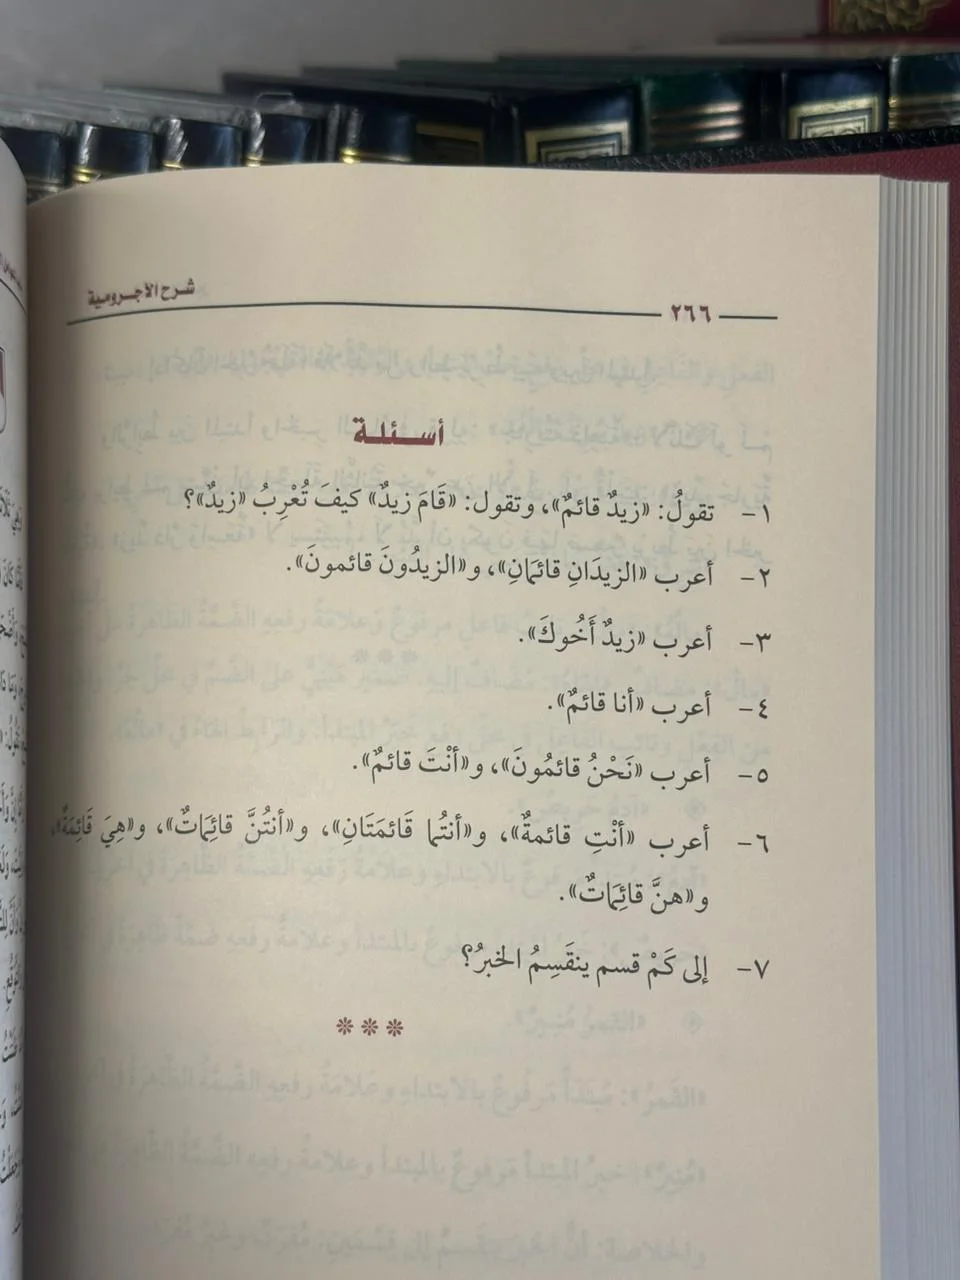 شرح الآجرومية
٢٦٦
أسئلة
١- تقولُ: «زيدٌ قائمٌ»، وتقول: «قَامَ زيدٌ» كيفَ تُعْرِبُ «زيدٌ»؟
٢- أعرب «الزيدَانِ قائمَانِ»، و«الزيدُونَ قائمونَ».
٣- أعرب «زيدٌ أَخُوكَ».
٤- أعرب «أنا قائمٌ».
٥- أعرب «نَحْنُ قائمُونَ»، و«أنْتَ قائمٌ».
٦- أعرب «أنْتِ قائمةٌ»، و«أنتُما قَائمَتَانِ»، و«أنتُنَّ قائِمَاتٌ»، و«هِيَ قَائِمَةٌ»،
و«هنَّ قائِمَاتٌ».
٧- إلى كَمْ قسم ينقَسِمُ الخبرُ؟
***